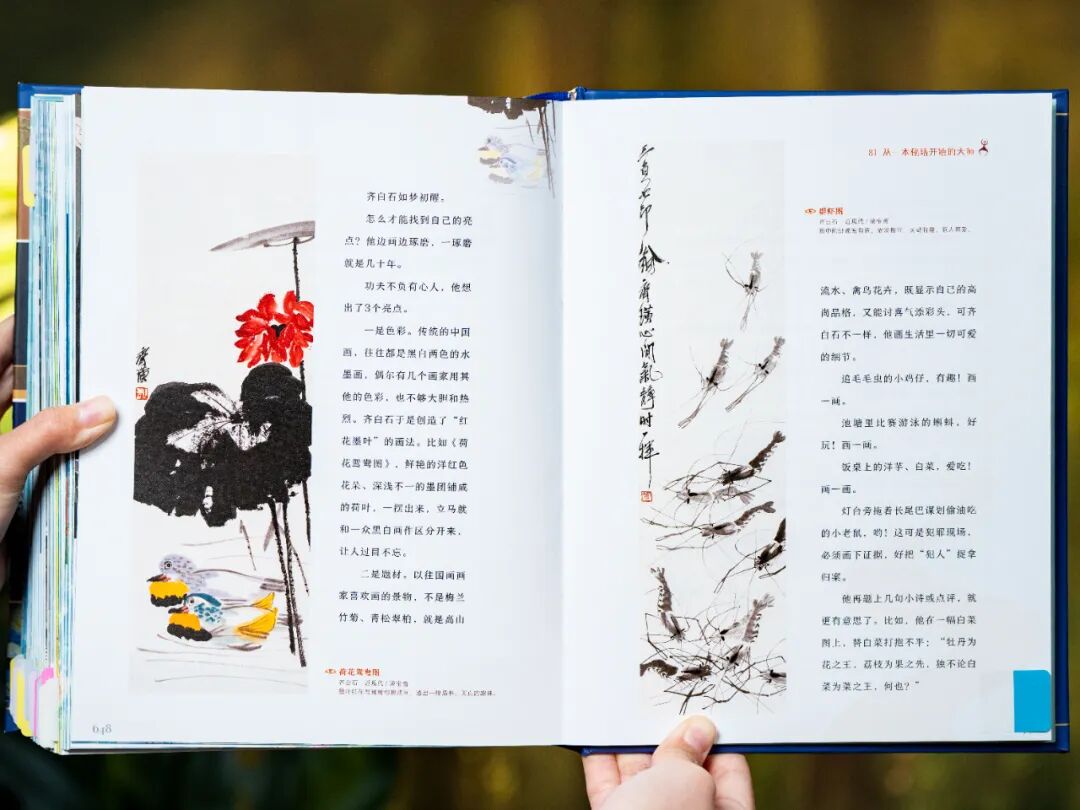 齐白石如梦初醒。
怎么才能找到自己的亮
点？他边画边琢磨，一琢磨
就是几十年。
功夫不负有心人，他想
出了3个亮点。
一是色彩。传统的中国
画，往往都是黑白两色的水
墨画，偶尔有几个画家用其
他的色彩，也不够大胆和热
烈。齐白石于是创造了“红
花墨叶”的画法。比如《荷
花鸳鸯图》，鲜艳的洋红色
花朵、深浅不一的墨团铺成
的荷叶，一摆出来，立马就
和一众黑白画作区分开来，
让人过目不忘。
二是题材。以往国画画
家喜欢画的景物，不是梅兰
竹菊、青松翠柏，就是高山
荷花鸳鸯图
齐白石 近现代
648
81 从一本秘籍开始的大师
群虾图
齐白石 近现代
流水、禽鸟花卉，既显示自己的高
尚品格，又能讨喜气添彩头，可齐
白石不一样，他画生活里一切可爱
的细节。
追毛毛虫的小鸡仔，有趣！画
一画。
池塘里比赛游泳的蝌蚪，好
玩！画一画。
饭桌上的洋芋、白菜，爱吃！
画一画。
灯台旁拖着长尾巴谋划偷油吃
的小老鼠，哟！这可是犯罪现场，
必须画下证据，好把“犯人”捉拿
归案。
他再题上几句小诗或点评，就
更有意思了。比如，他在一幅白菜
图上，替白菜打抱不平：“牡丹为
花之王，荔枝为果之先，独不论白
菜为菜之王，何也？”